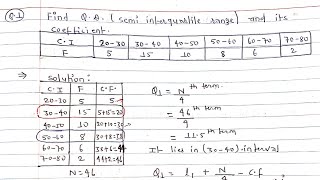 Q.1) Find Q.D. (semi interquartile range) and its
coefficient.
C.I 20-30 30-40 40-50 50-60 60-70 70-80
F 5 15 10 8 6 2
→ solution:
C.I F C.F.
20-30 5 5
30-40 15 5+15=20
40-50 10 20+10=30
50-60 8 30+8=38
60-70 6 38+6=44
70-80 2 44+2=46
N=46
Q1 = N/4 th term
= 46/4 th term
= 11.5th term
It lies in (30-40) interval
Q1 = l1 + N/4 - c.f